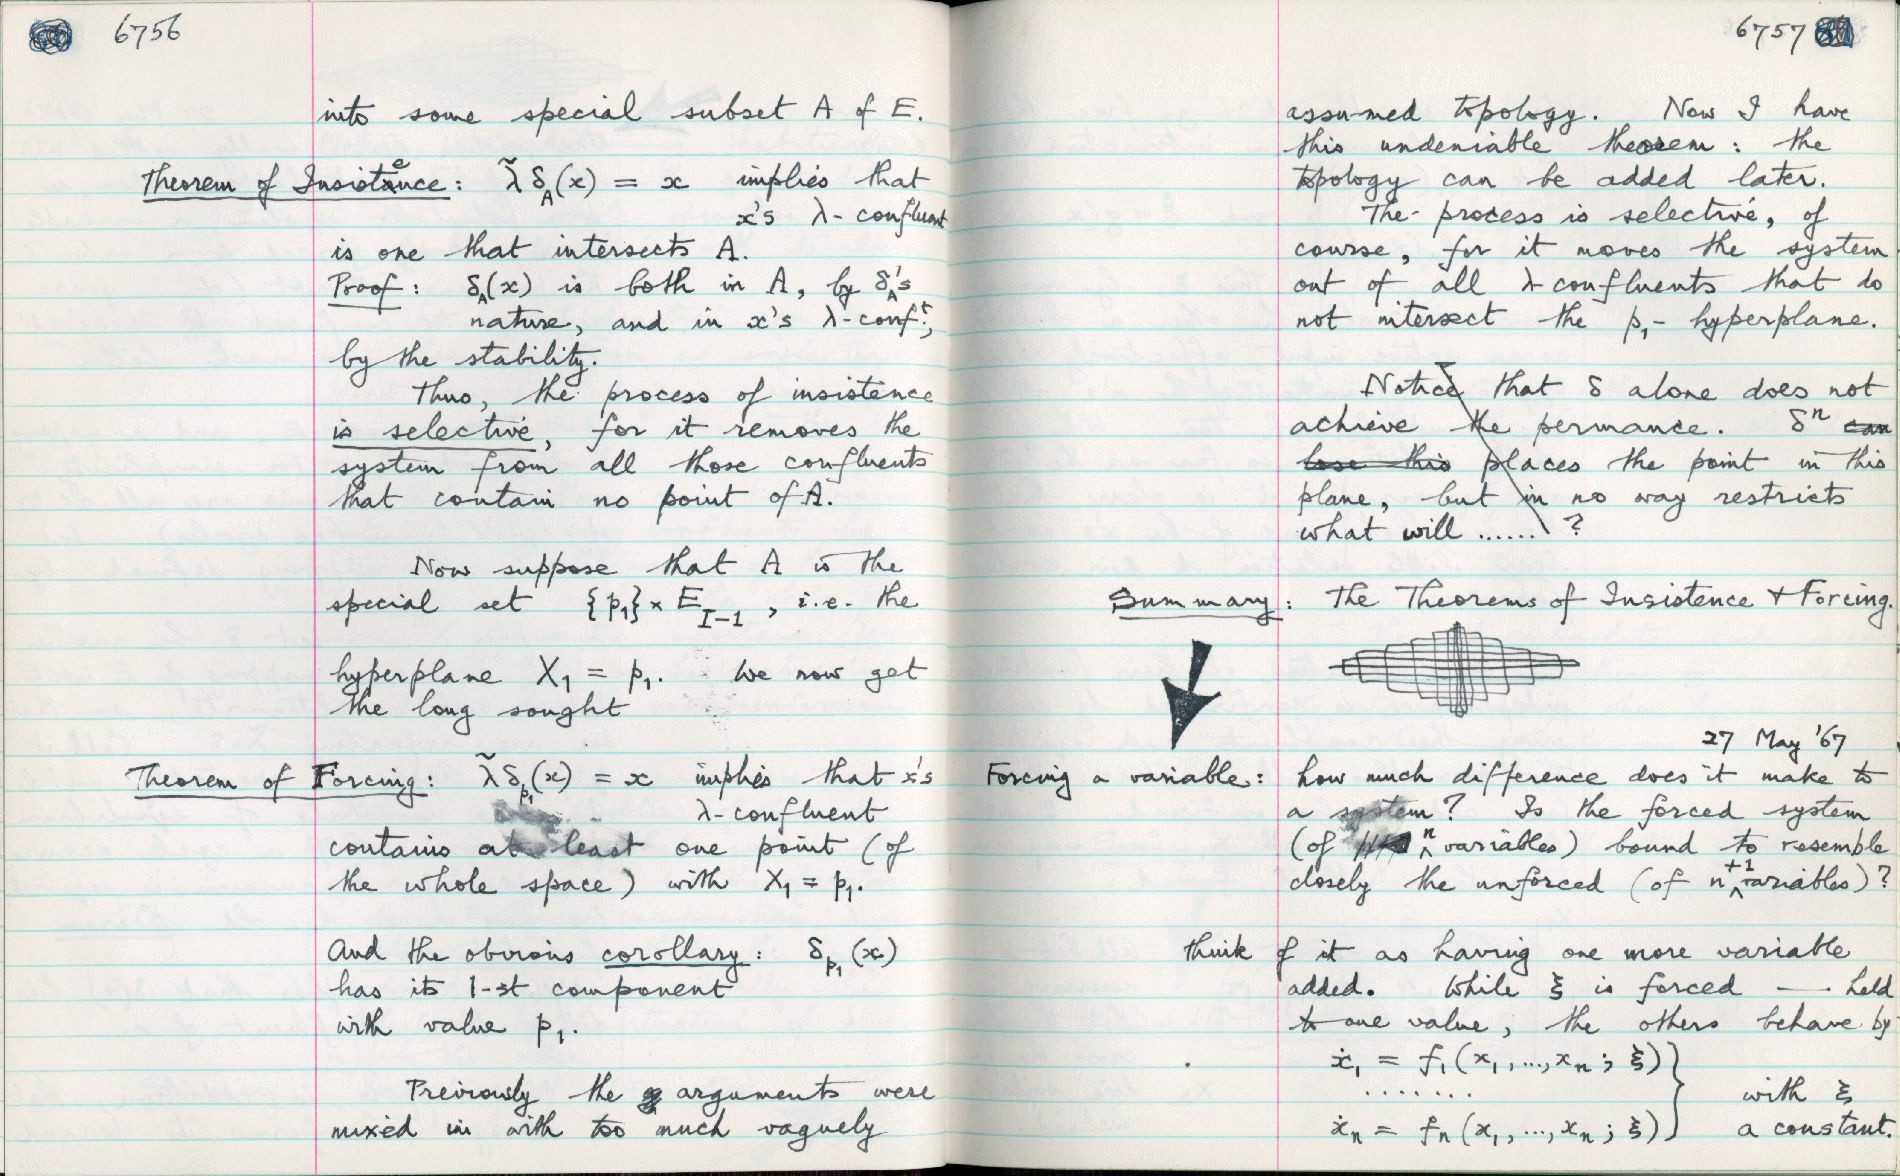 6756
into some special subset A of E.
Theorem of Insistence: λ̃δ_A(x) = x implies that
x's λ-confluent
is one that intersects A.
Proof: δ_A(x) is both in A, by δ_A's
nature, and in x's λ-conf.t,
by the stability.
Thus, the process of insistence
is selective, for it removes the
system from all those confluents
that contain no point of A.
Now suppose that A is the
special set {p₁} × E_{I-1}, i.e. the
hyperplane X₁ = p₁. We now get
the long sought
Theorem of Forcing: λ̃δ_{p₁}(x) = x implies that x's
λ-confluent
contains at least one point (of
the whole space) with X₁ = p₁.
And the obvious corollary: δ_{p₁}(x)
has its 1-st component
with value p₁.
Previously the arguments were
mixed in with too much vaguely
6757
assumed topology. Now I have
this undeniable theorem: the
topology can be added later.
The process is selective, of
course, for it moves the system
out of all λ-confluents that do
not intersect the p₁-hyperplane.
Notice that δ alone does not
achieve the permance. δⁿ can
lose this places the point in this
plane, but in no way restricts
what will ......?
Summary: The Theorems of Insistence & Forcing.
27 May '67
Forcing a variable: how much difference does it make to
a system? Is the forced system
(of n variables) bound to resemble
closely the unforced (of n+1 variables)?
Think of it as having one more variable
added. While ξ is forced — held
to one value, the others behave by
ẋ₁ = f₁(x₁, ..., xₙ; ξ)
....... with ξ
ẋₙ = fₙ(x₁, ..., xₙ; ξ) a constant.